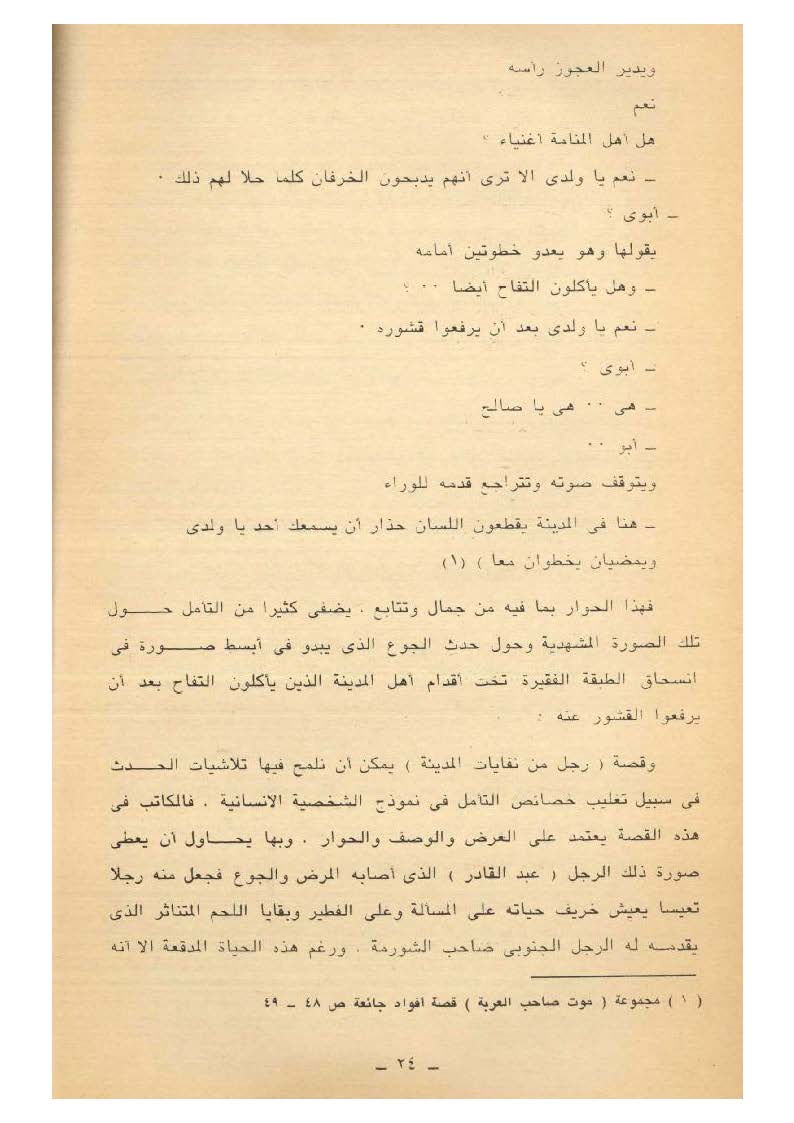 ويدير العجوز رأسه
نعم
هل أهل المنامة أغنياء ؟
ـ نعم يا ولدى الا ترى أنهم يدبحون الخرفان كلما حلا لهم ذلك ٠
ـ أبوى ؟
يقولها وهو يعدو خطوتين أمامه
ـ وهل يأكلون التفاح أيضا ٠٠ ؟
ـ نعم يا ولدى بعد أن يرفعوا قشوره ٠
ـ أبوى ؟
ـ هى ٠٠ هى يا صالح
ـ أبو ٠٠
ويتوقف صوته وتتراجع قدمه للوراء
ـ هنا فى المدينة يقطعون اللسان حذار أن يسمعك أحد يا ولدى
ويمضيان يخطوان معا ) (١)
فهذا الحوار بما فيه من جمال وتتابع . يضفى كثيرا من التأمل حـــول
تلك الصورة المشهدية وحول حدث الجوع الذى يبدو فى أبسط صـــورة فى
انسحاق الطبقة الفقيرة تخت أقدام أهل المدينة الذين يأكلون التفاح بعد أن
يرفعوا القشور عنه :
وقصة ( رجل من نفايات المدينة ) يمكن أن نلمح فيها تلاشيات الحـــدث
فى سبيل تغليب خصائص التأمل فى نموذج الشخصية الانسانية . فالكاتب فى
هذه القصة يعتمد على العرض والوصف والحوار . وبها يحــاول أن يعطى
صورة ذلك الرجل ( عبد القادر ) الذى أصابه المرض والجوع فجعل منه رجلا
تعيسا يعيش خريف حياته على المسألة وعلى الفطير وبقايا اللحم المتناثر الذى
يقدمــه له الرجل الجنوبى صاحب الشورمة . ورغم هذه الحياة المدقعة الا أنه
( ١ ) مجموعة ( موت صاحب العربة ) قصة أفواد جائعة ص ٤٨ ـ ٤٩
ـ ٢٤ ـ